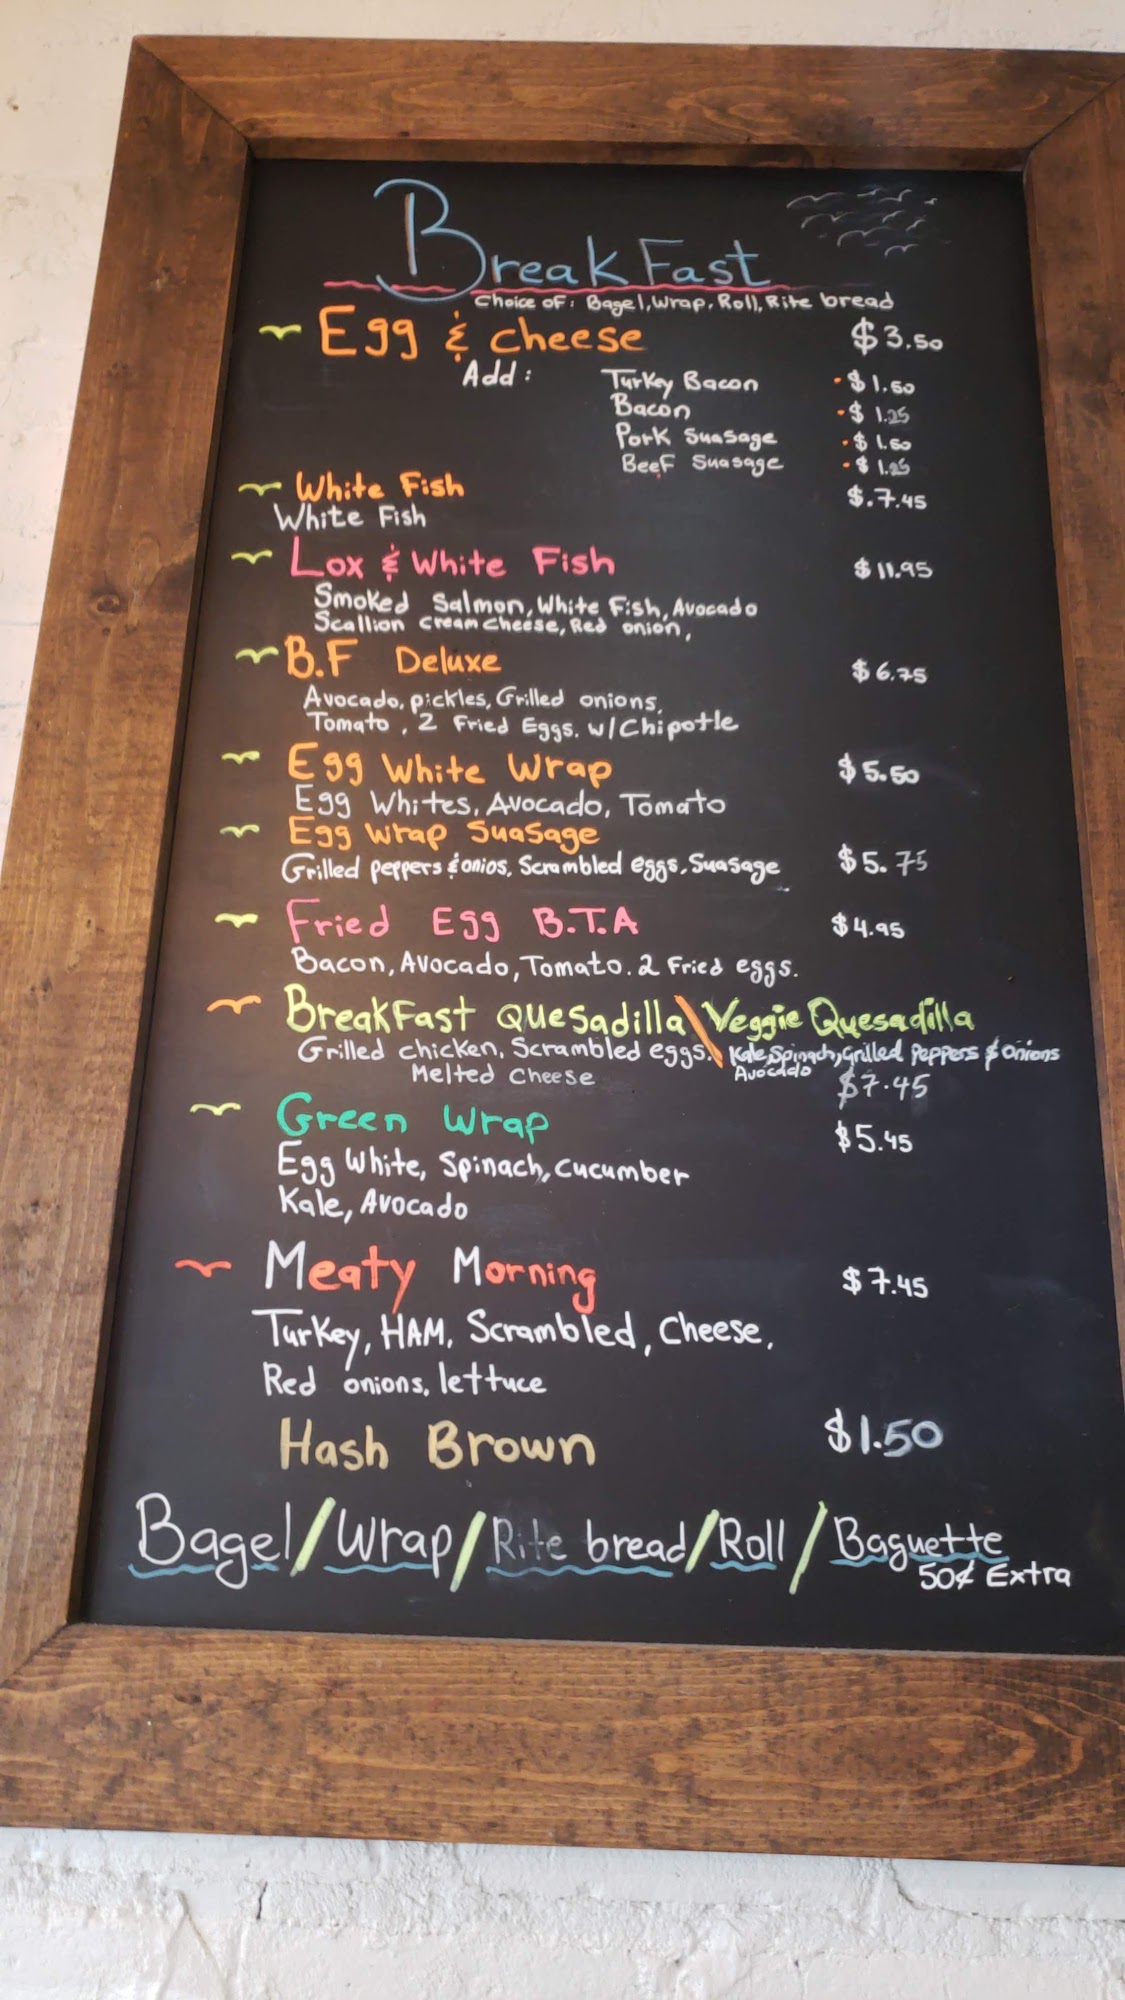 BreakFast
Choice of: Bagel, Wrap, Roll, Rite bread
Egg & cheese $3.50
Add: Turkey Bacon $1.50
Bacon $1.25
Pork Suasage $1.50
Beef Suasage $1.25
White Fish $.7.45
White Fish
Lox & White Fish $11.95
Smoked Salmon, White Fish, Avocado
Scallion creamcheese, Red onion,
B.F Deluxe $6.75
Avocado, pickles, Grilled onions,
Tomato, 2 Fried Eggs. w/Chipotle
Egg White Wrap $5.50
Egg Whites, Avocado, Tomato
Egg Wrap Suasage
Grilled peppers & onios, Scrambled eggs, Suasage $5.75
Fried Egg B.T.A $4.95
Bacon, Avocado, Tomato. 2 Fried eggs.
BreakFast Quesadilla\Veggie Quesadilla
Grilled chicken, Scrambled eggs. Kale, Spinach, Grilled Peppers & onions
Melted Cheese Avocado $7.45
Green Wrap $5.45
Egg White, Spinach, Cucumber
Kale, Avocado
Meaty Morning $7.45
Turkey, HAM, Scrambled, Cheese,
Red onions, lettuce
Hash Brown $1.50
Bagel/Wrap/Rite bread/Roll/Baguette
50¢ Extra